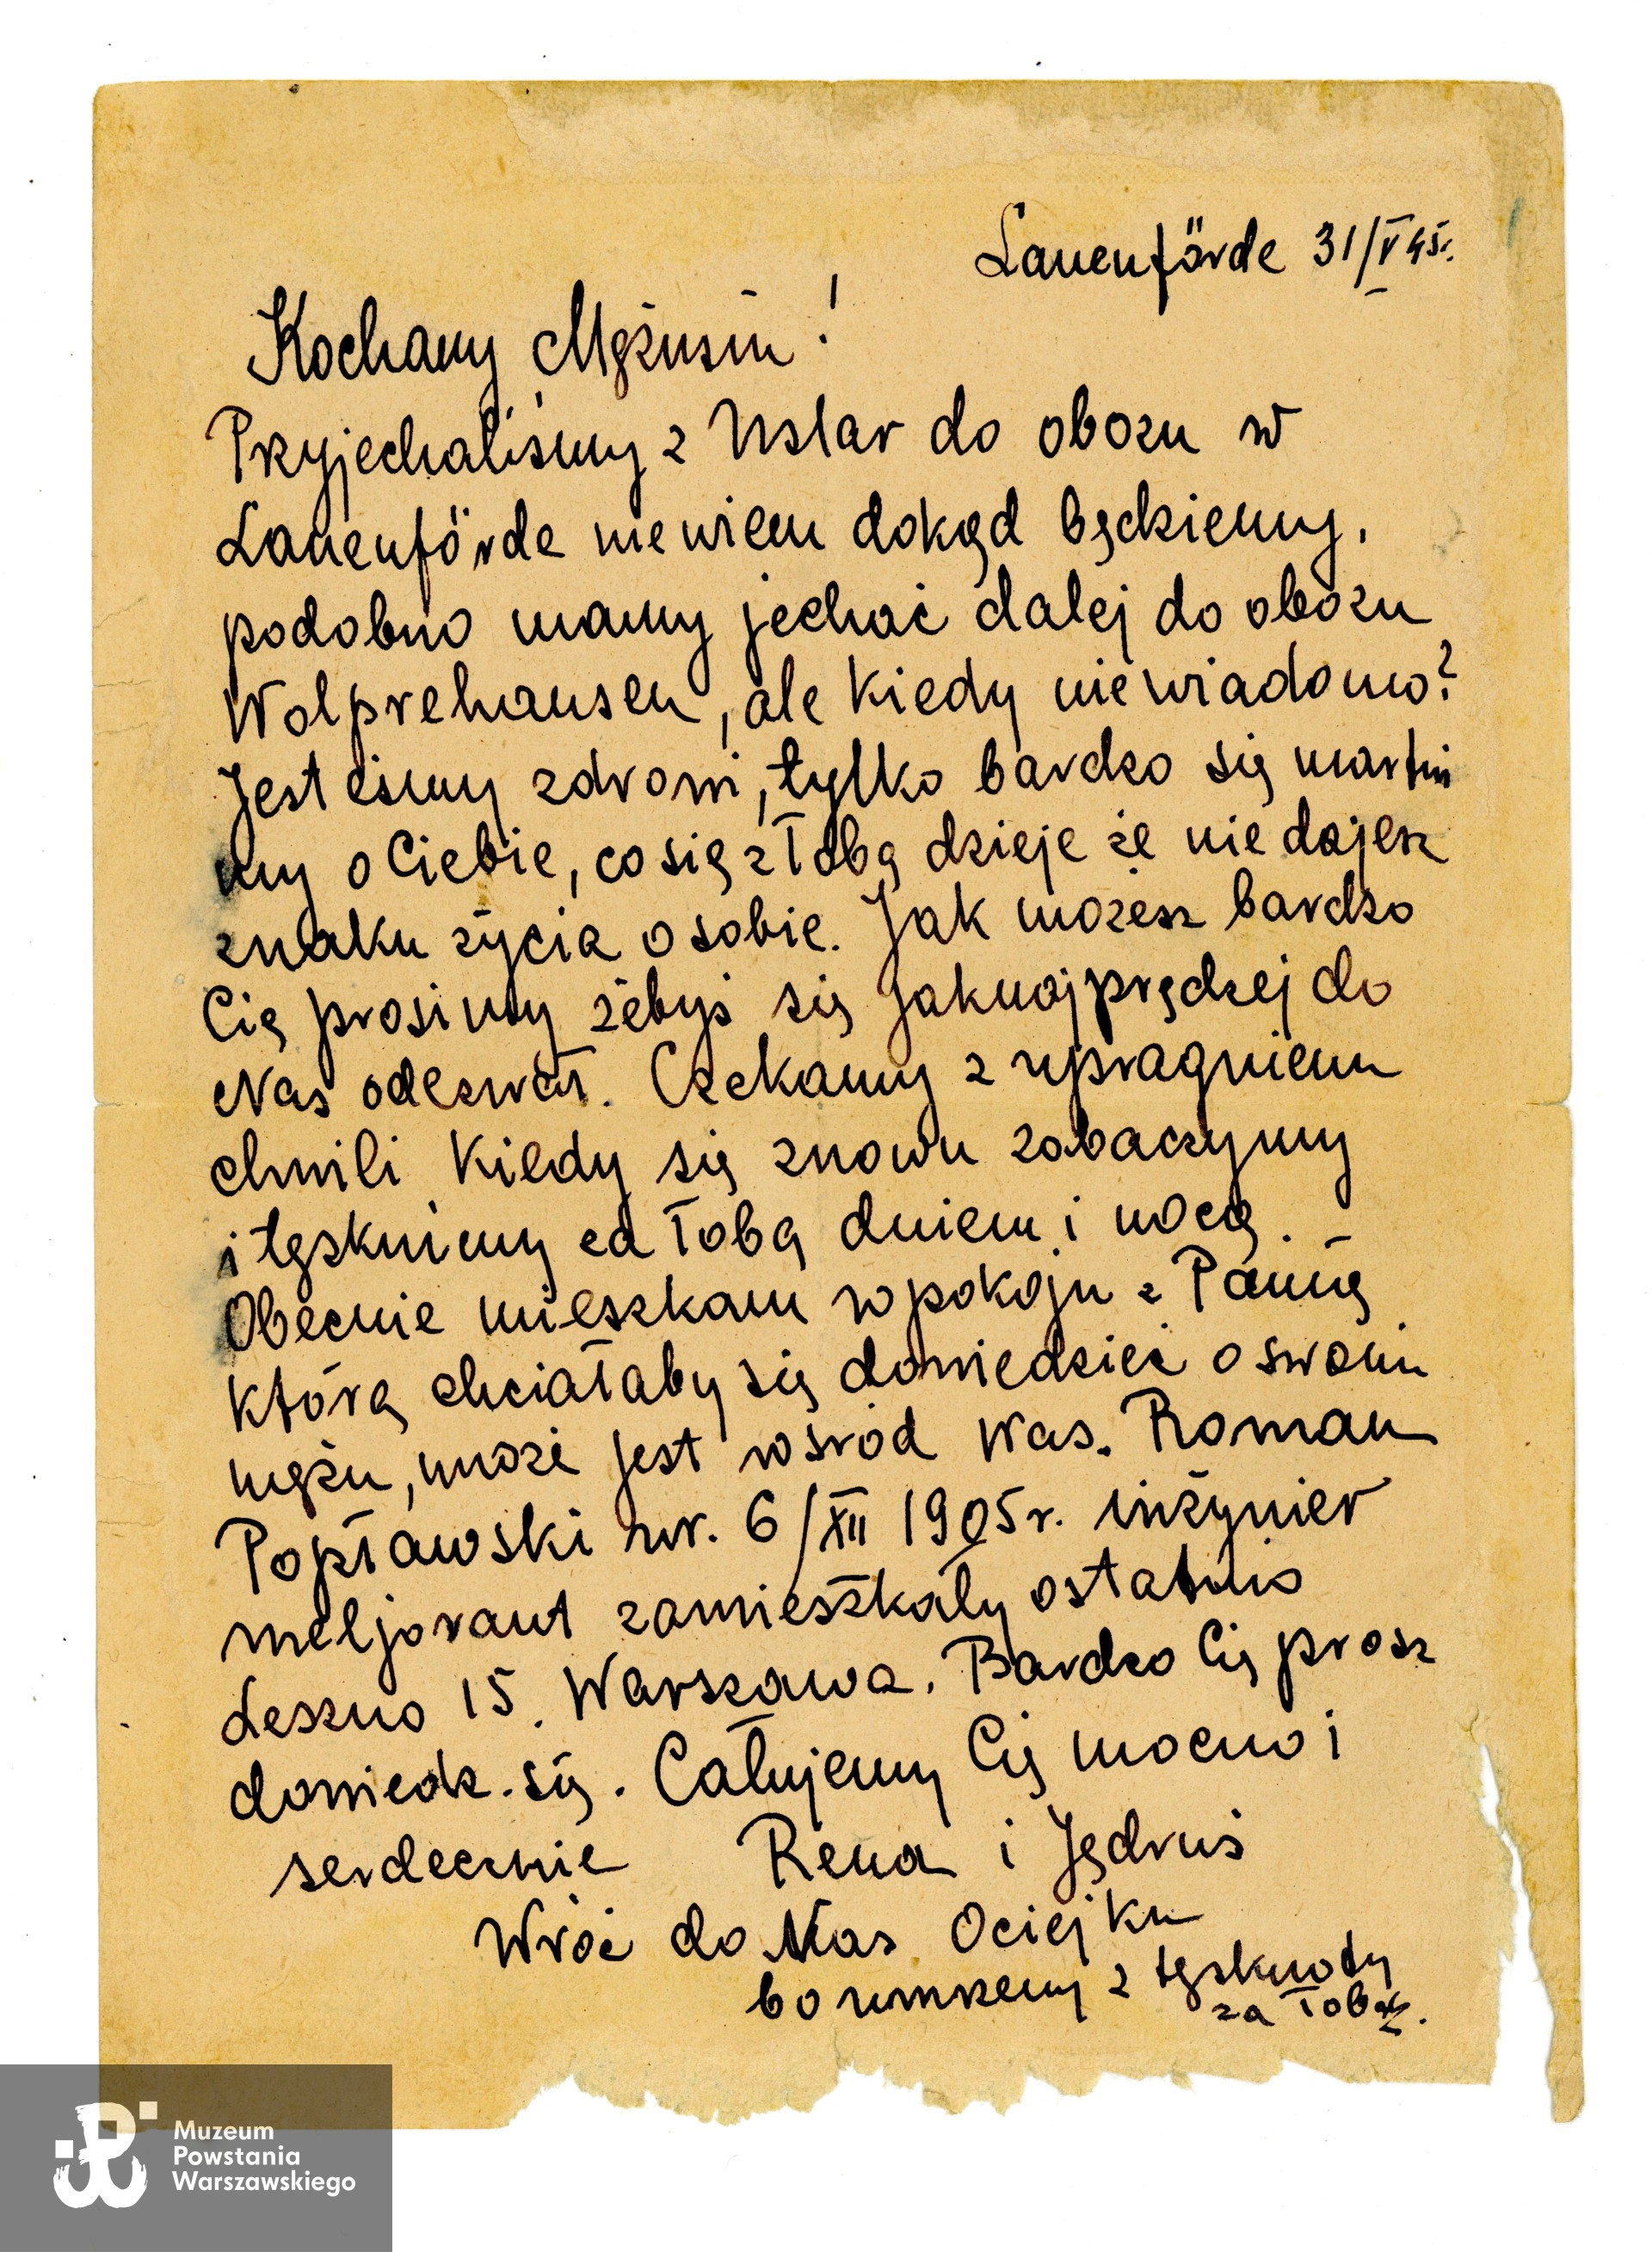 Lauenförde 31/V 45r.
Kochany Mężusiu!
Przyjechaliśmy z Uslar do obozu w
Lauenförde nie wiem dokąd będziemy,
podobno mamy jechać dalej do obozu
Wolprehausen, ale kiedy nie wiadomo?
Jesteśmy zdrowi, tylko bardzo się martwi
my o Ciebie, co się z Tobą dzieje że nie dajesz
znaku życia o sobie. Jak możesz bardzo
Cię prosimy żebyś się jaknajprędzej do
Nas odezwał. Czekamy z upragnieniem
chwili kiedy się znowu zobaczymy
i tęsknimy za Tobą dniem i nocą.
Obecnie mieszkam w pokoju z Panią
którą chciałaby się dowiedzieć o swoim
mężu, może jest wśród Was. Roman
Popławski ur. 6/XII 1905r. inżynier
meljorant zamieszkały ostatnio
Leszno 15. Warszawa. Bardzo Cię prosz
dowiedz. się. Całujemy Cię mocno i
serdecznie Rena i Jędruś
Wróć do Nas Ociejku
bo umrzemy z tęsknoty
za Tobą.
Muzeum
Powstania
Warszawskiego